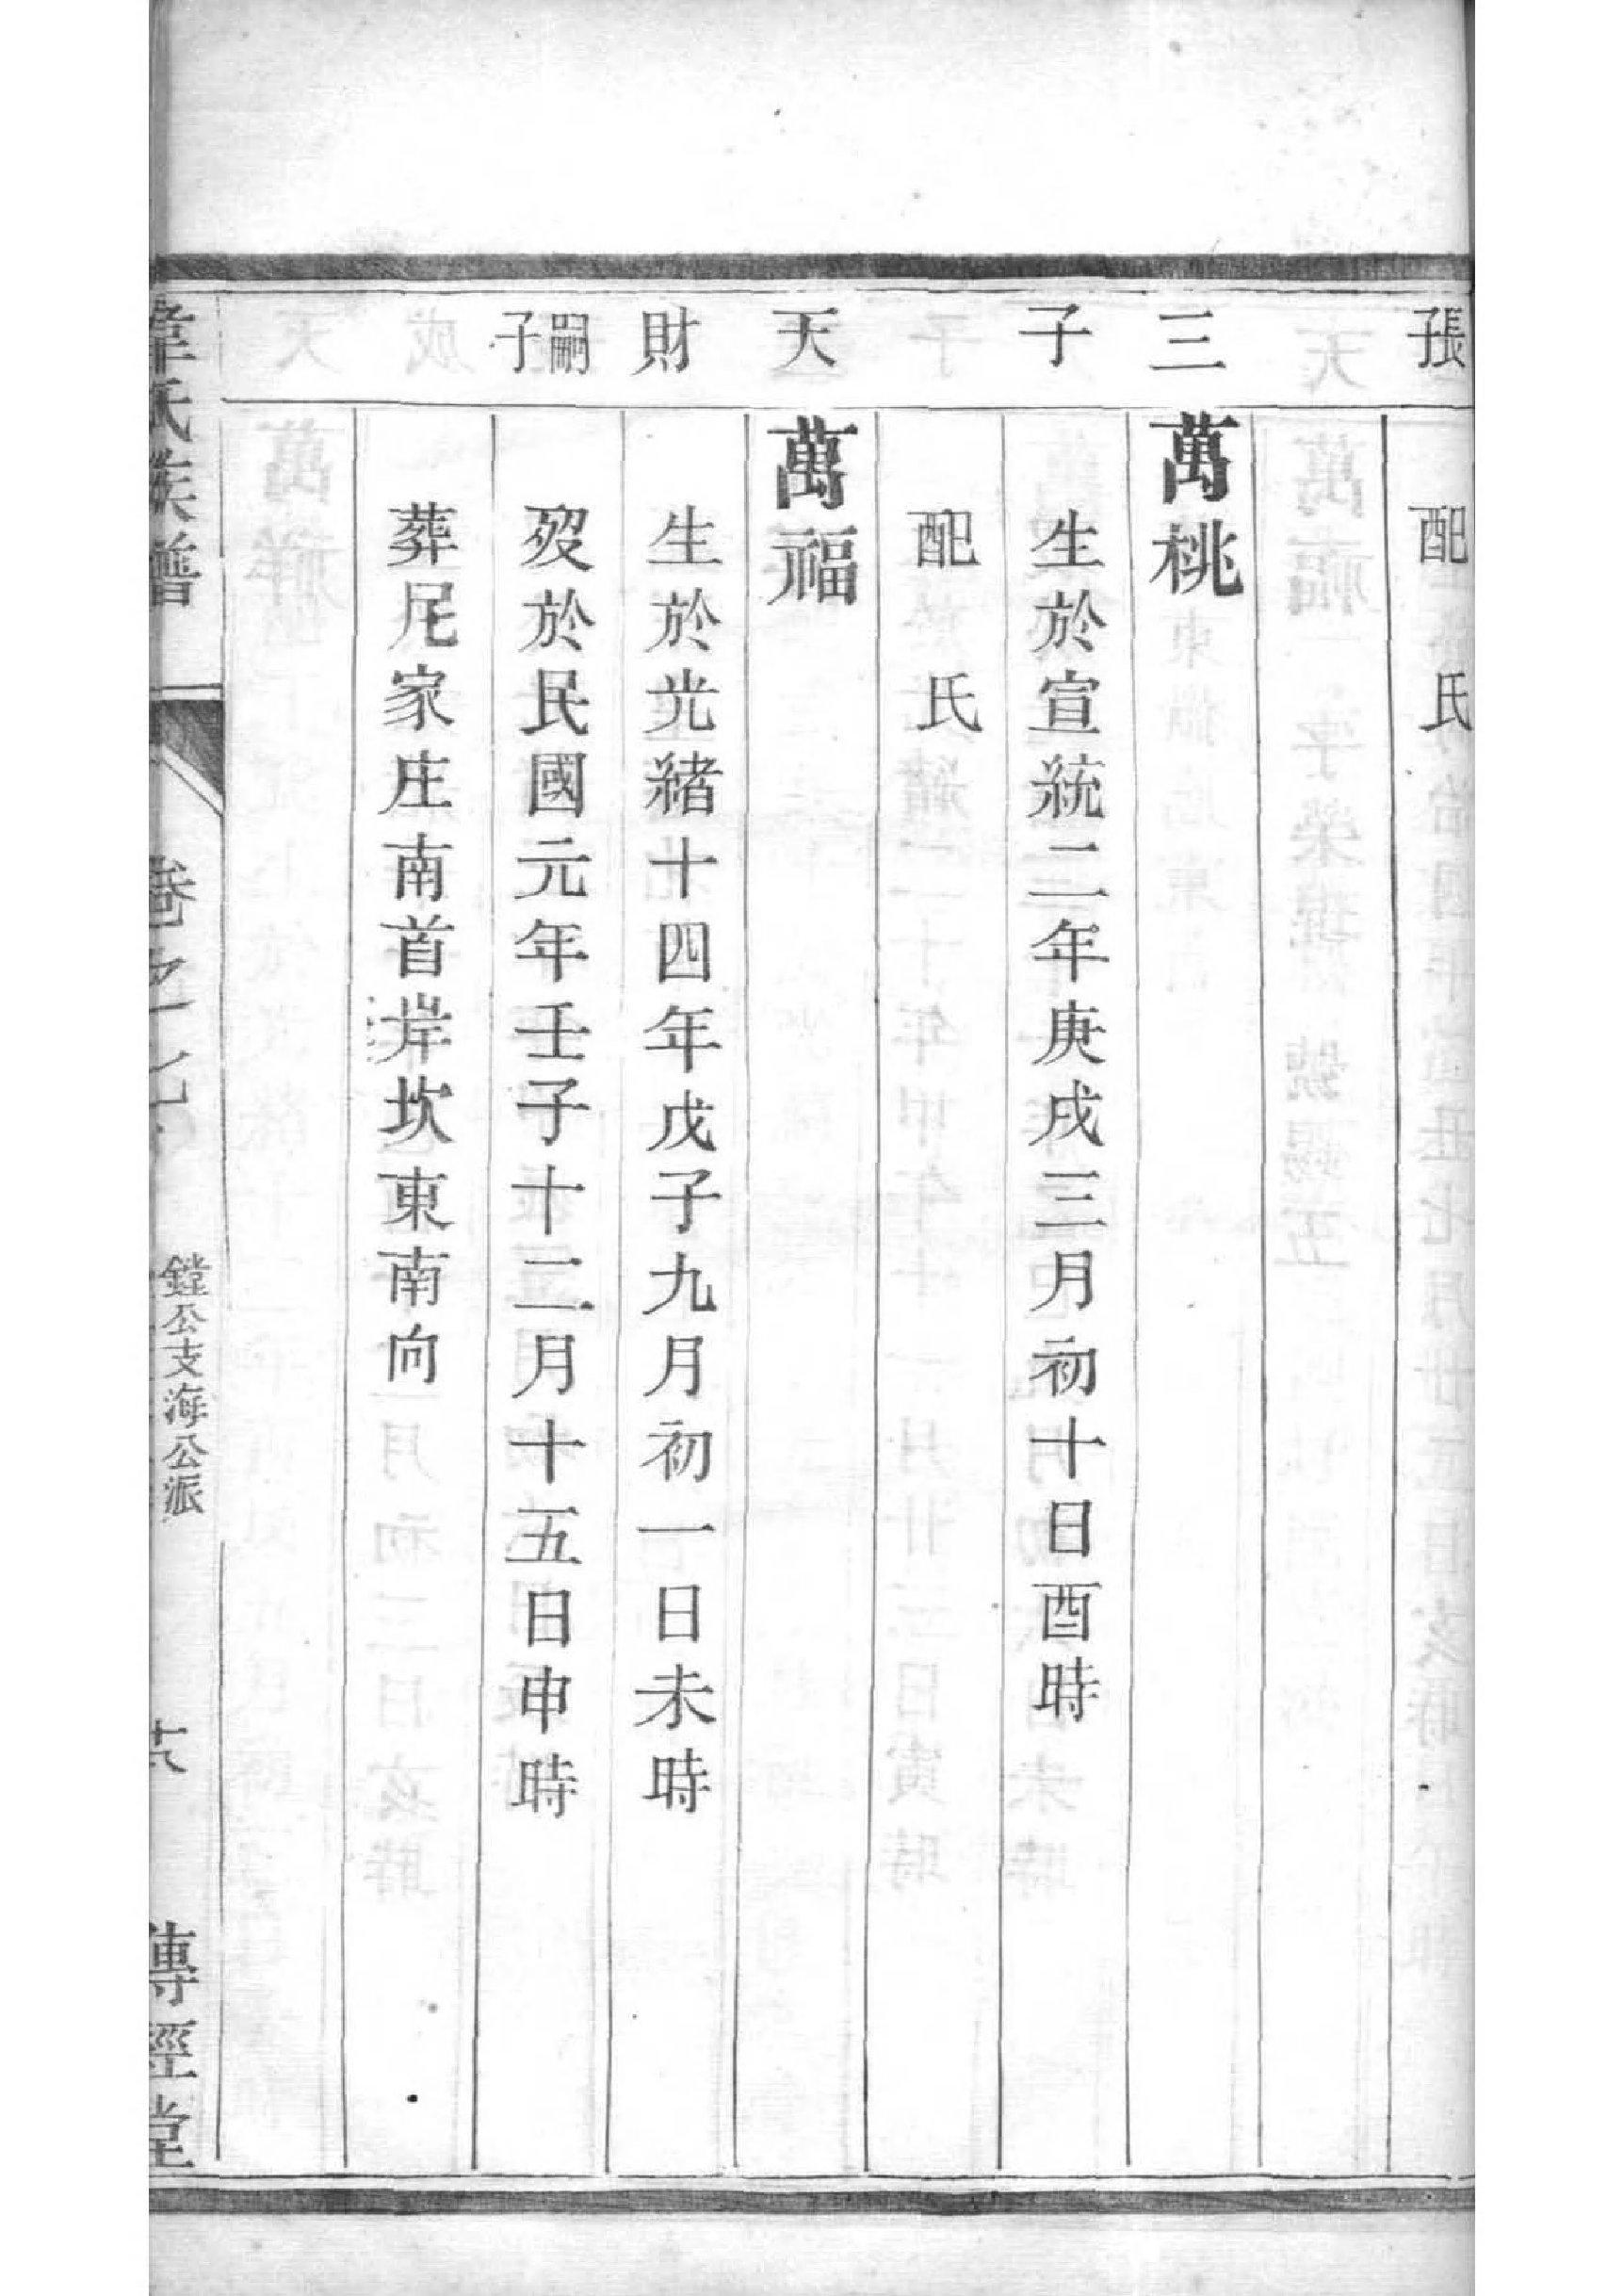 張
配　氏
三
萬桃
子
生於宣統二年庚戌三月初十日酉時
配　氏
天
萬福
財
生於光緒十四年戊子九月初一日未時
嗣子
歿於民國元年壬子十二月十五日申時
葬尼家庄南首岸坎東南向
韋氏族譜
卷之七
鏜公支海公派
傳經堂